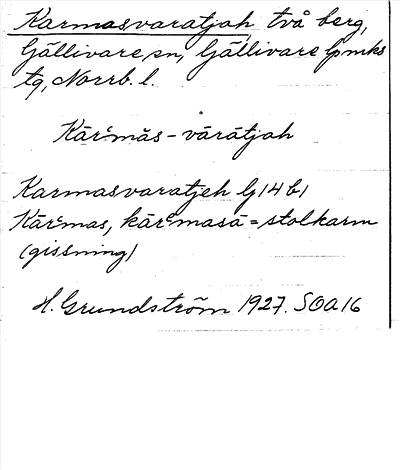 Karmasvaratjah, två berg,
Gällivare sn, Gällivare lpmks
tg, Norrb. l.
Kārᵉmăs-vārātjah
Karmasvaratjeh Gj 4 b)
Kārᵉmas, kārᵉmasā = stolkarm
(gissning)
H. Grundström 1927. SOA 16